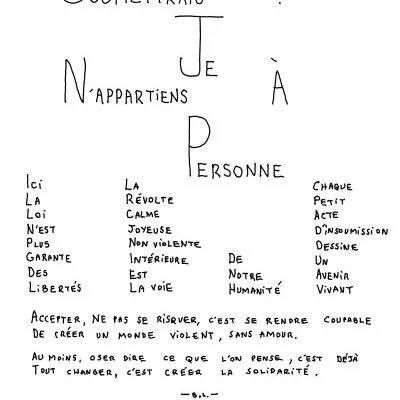 JE
N'APPARTIENS À
PERSONNE
ICI
LA
LOI
N'EST
PLUS
GARANTE
DES
LIBERTÉS
LA
RÉVOLTE
CALME
JOYEUSE
NON VIOLENTE
INTÉRIEURE
EST
LA VOIE
DE
NOTRE
HUMANITÉ
CHAQUE
PETIT
ACTE
D'INSOUMISSION
DESSINE
UN
AVENIR
VIVANT
ACCEPTER, NE PAS SE RISQUER, C'EST SE RENDRE COUPABLE
DE CRÉER UN MONDE VIOLENT, SANS AMOUR.
AU MOINS, OSER DIRE CE QUE L'ON PENSE, C'EST DÉJÀ
TOUT CHANGER, C'EST CRÉER LA SOLIDARITÉ.
— B.L. —